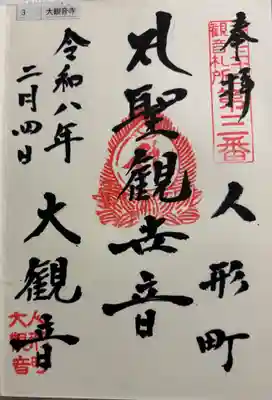 3 大観音寺
奉拝
江戸三十三
観音札所
第三番
人形町
聖観世音
大観音
令和八年
二月四日
人形町
大観音